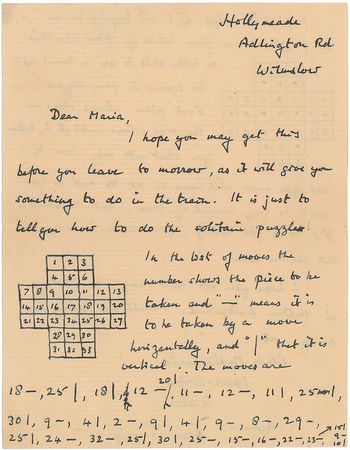 Hollymeade
Adlington Rd
Wilmslow
Dear Maria,
I hope you may get this
before you leave to morrow, as it will give you
something to do in the train. It is just to
tell you how to do the solitaire puzzle.
1 2 3
4 5 6
7 8 9 10 11 12 13
14 15 16 17 18 19 20
21 22 23 24 25 26 27
28 29 30
31 32 33
In the list of moves the
number shows the piece to be
taken and "—" means it is
to be taken by a move
horizontally, and "|" that it is
vertical. The moves are
18 –, 25 |, 18 |, 12 – 20|, 11 –, 12 –, 11 |, 25
30 |, 9 –, 4 |, 2 –, 9 |, 4 |, 9 –, 8 –, 29 –,
25 |, 24 –, 32 –, 25 |, 30 |, 25 –, 15 –, 16 –, 22 –, 23 –, 15 |
9 –
10 |